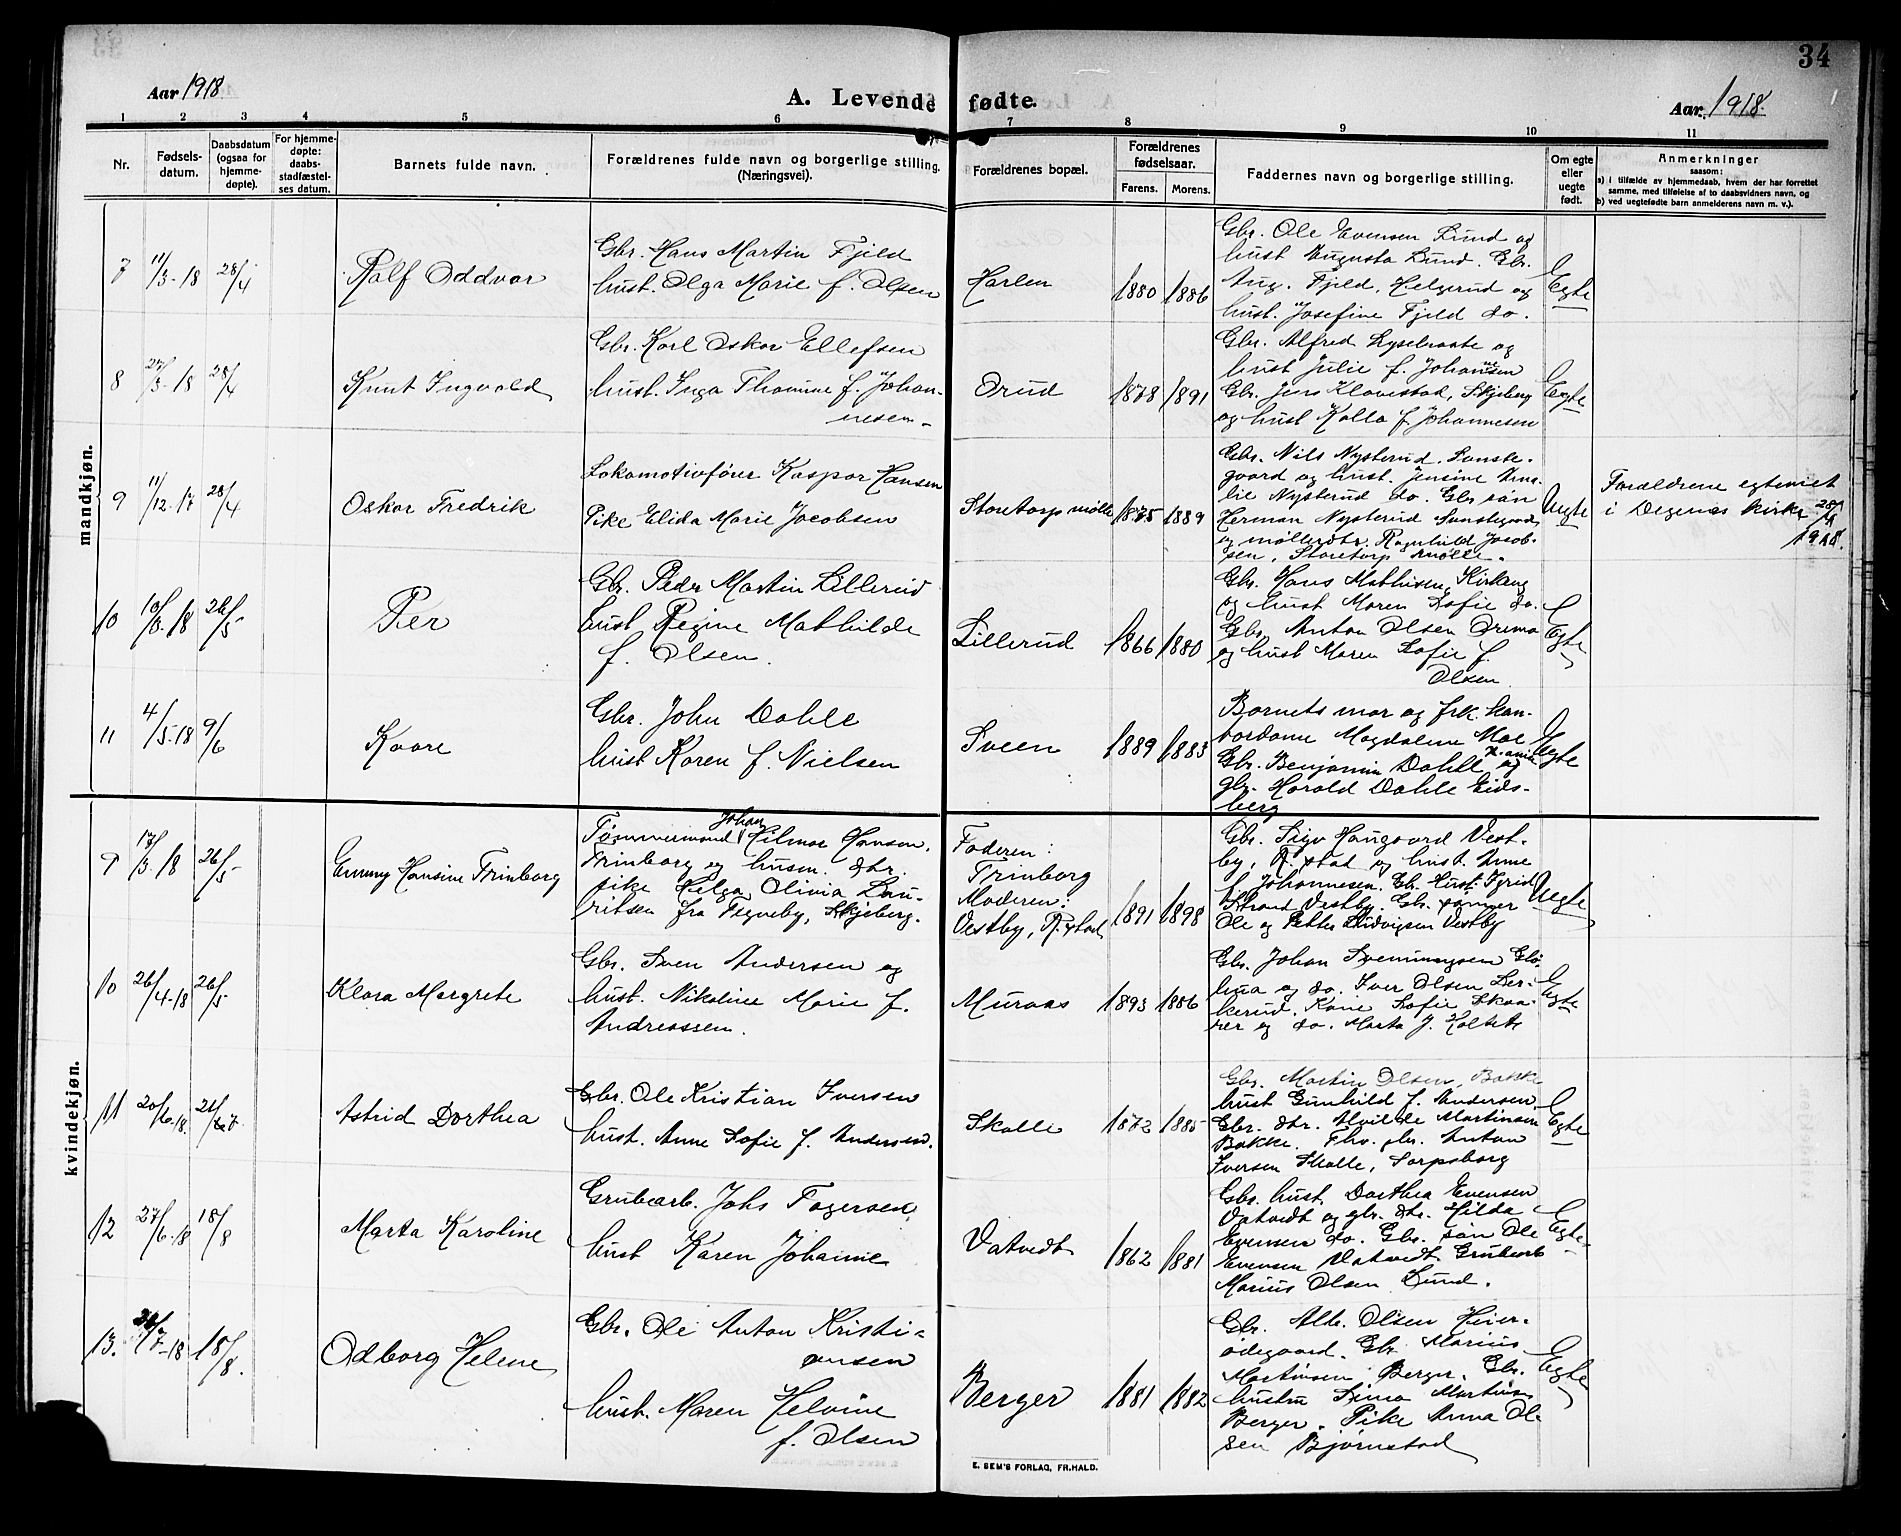 34
Aar 1918.
A. Levende fødte.
Aar 1918.
1 2 3 4 5 6 7 8 9 10 11
Nr.
Fødsels-
datum.
Daabsdatum
(ogsaa for
hjemme-
døpte).
For hjemme-
døpte:
daabs-
stadfæstel-
ses datum.
Barnets fulde navn.
Forældrenes fulde navn og borgerlige stilling.
(Næringsvei).
Forældrenes bopæl.
Forældrenes
fødselsaar.
Farens. Morens.
Faddernes navn og borgerlige stilling.
Om egte
eller
uegte
født.
Anmerkninger
saasom:
a) i tilfælde av hjemmedaab, hvem der har forrettet
samme, med tilføielse af to daabsvidners navn, og
b) ved uegtefødte barn anmelderens navn m. v.).
mandkjøn.
7 11/3-18 28/4
Ralf Oddvar
Gbr. Hans Martin Fjeld
hust. Olga Marie f. Olsen
Harlem
1880 1886
Gbr. Ole Evensen Lund og
hust Augusta Lund. Gbr.
Aug. Fjeld, Helgerud og
hust. Josefine Fjeld do.
Egte
8 27/3-18 28/4
Knut Ingvald
Gbr. Karl Oskar Ellefsen
hust. Inga Thomine f. Johan-
nesen
Orud
1878 1891
Gbr. Alfred og
hust Julie f. Johannesen
Gbr. Jens Klavestad, Skjeberg
og hust Kalla f Johannesen
Egte
9 11/12-17 28/4
Oskar Fredrik
Lokomotivfører Kaspar Hansen
Pike Elida Marie Jacobsen
Storetorp mølle
1875 1889
Gbr. Nils Nysterud. Sunste-
gaard og hust. Jensine Ama-
lie Nysterud do. Gbr søn
Herman Nysterud Sunstegaard
og mølledtr. Ragnhild Jacob-
sen, Storetorp mølle.
Uegte
Forældrene egteviet
i Degernes kirke 28/4
1918.
10 10/3-18 26/5
Per
Gbr. Peder Martin Lillerud
hust Regine Mathilde
f. Olsen.
Lillerud
1866 1880
Gbr. Hans Mathisen, Kirkeng
og hust Maren Sofie do.
Gbr. Anton Olsen
og hust Maren Sofie f.
Olsen
Egte
11 4/5-18 9/6
Kaare
Gbr. John Dahle
hust Karen f. Nielsen
Sveen
1889 1883
Barnets mor og frk. kan-
tordame Magdalene Moe
Gbr. Benjamin Dahle og
gbr. Harald Dahle Eids-
berg
kvindekjøn.
9 17/3-18 26/5
Emmy Hansine Trinborg
Tømmermand Johan Hilmar Hansen,
Trinborg og husm. dtr.
pike Helga Olivia Lau-
ritsen fra Tegneby, Skjeberg.
Faderen:
Trinborg
Moderen:
Vestby, R.stad
1891 1898
Gbr. Haugaard Vest-
by, R.stad og hust. Anne
f. Johannesen. Gb. Hust.
Strand Vestby. Gb. sønner
Ole og Petter Ludvigsen Vestby
Uegte
10 26/4-18 26/5
Klara Margrete
Gbr. Sven Andersen og
hust. Nikoline Marie f.
Andreassen.
Muraas
1893 1886
Gbr. Johan Svenningsen
og do. Iver Olsen Ler-
kerud. Karie Sofie Skaa-
rer og do. Marta J. Holtet
Egte
11 20/6-18
Astrid Dorthea
Gbr. Ole Kristian Iversen
hust. Anne Sofie f. Andersen.
Skolle
1872 1885
Gbr. Martin Olsen, Bakke
hust Gunhild f. Andersen
Gbr. dtr. Alvilde Martinsen
Bakke. Fhv. gbr. Anton
Iversen Skolle, Sarpsborg
Egte
12 27/6-18 18/8
Marta Karoline
Grubearb. Johs Fagersen
hust Karen Johanne
Vatvedt
1862 1881
Gbr. hust. Dorthea Evensen
Vatvedt og gbr. dtr. Hilda
Evensen do. Gbr. søn Ole
Evensen Vatvedt Grubearb
Marius Olsen Lund.
Egte
13. 18/8.
Odborg Helene
Gbr. Ole Anton Kristi-
ansen
hust. Maren Helvine
f. Olsen
Berger
1881 1882
Gbr. Alb. Olsen Heier-
ødegaard. Gbr. Marius
Martinsen Berger. Gbr.
hustru Martins.
Berger. Pike Anna Ol-
sen Bjørnstad
Egte
E. SEM'S FORLAG, FR.HALD.